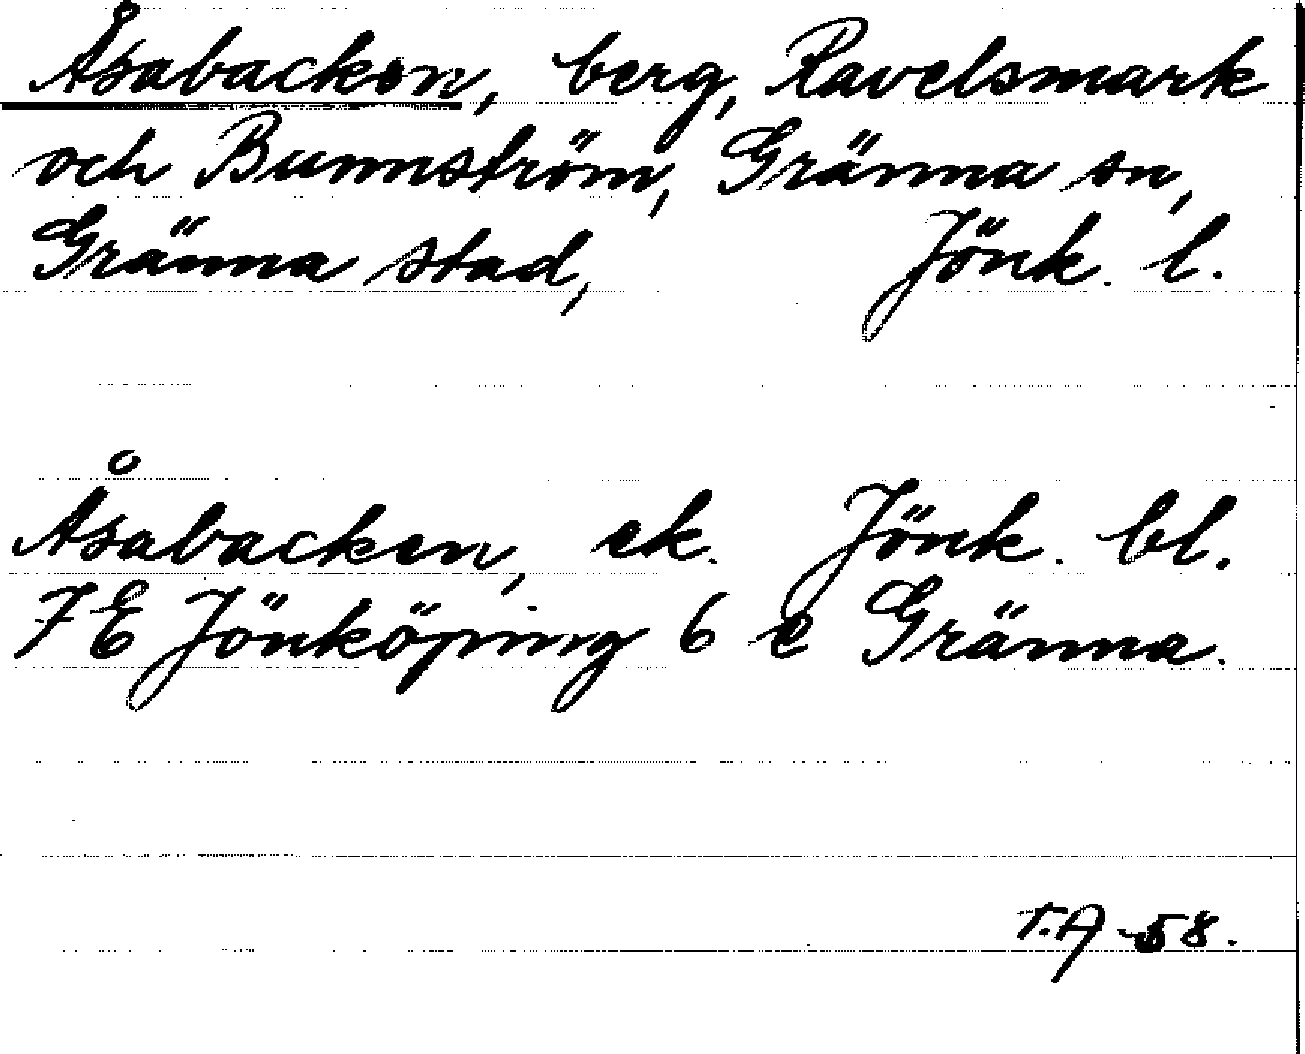 Åsabacken, berg, Ravelsmark
och Bunnström, Gränna sn,
Gränna stad, Jönk. l.
Åsabacken, ek. Jönk. bl.
7 E Jönköping 6 e Gränna.
T.A -58.